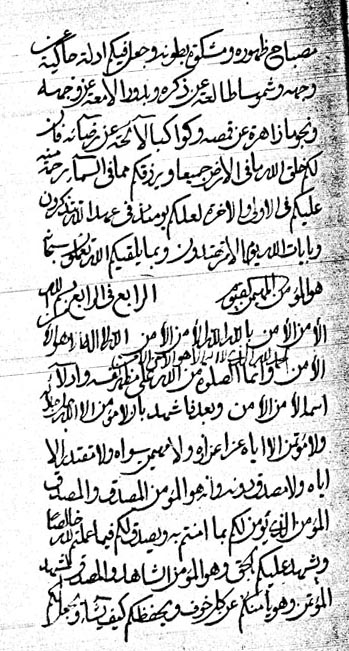 مصباح ظهوره ومشكوة بطونه وجعل فيكم ادلة حاكية عن
وجهه وشموسا طالعة عن ذكره وبدورا لامعة عن وجهه
ونجوما زاهرة عن قمصه وكواكبا لائحة عن رضائه فان
لكم خلق الله ما فى الارض جميعا ويرزقكم مما فى السماء رحمة منه
عليكم فى الاولى والاخرة لعلكم يومئذ فى عهد الله تذكرون
وبايات الله يوم الامر تهتدون وبما يلقيكم الله
هو المؤمن المهيمن القيوم الرابع فى الرابع
الا من الا من بالله الله الا من الا من الله لا اله الا هو الا
الا من وانما الصلوة من الله على مظهر نفسه وادلاء
اسم الا من الا من وبعد فاشهد بان لا مؤمن الا الله
ولا مؤتمن الا اياه عز اعزازه ولا مهيمن سواه ولا مقتدر الا
اياه ولا مصدق دونه وانه هو المؤمن المصدق والمصدق
المؤمن الذى يؤمن لكم بما امنتم به ويصدق لكم فيما عملتم لله خالصا
ويشهد عليكم بالحق وهو المؤمن الشاهد والمصدق
المؤتمن وهو يأمنكم عن كل خوف ويحفظكم كيف يشاء